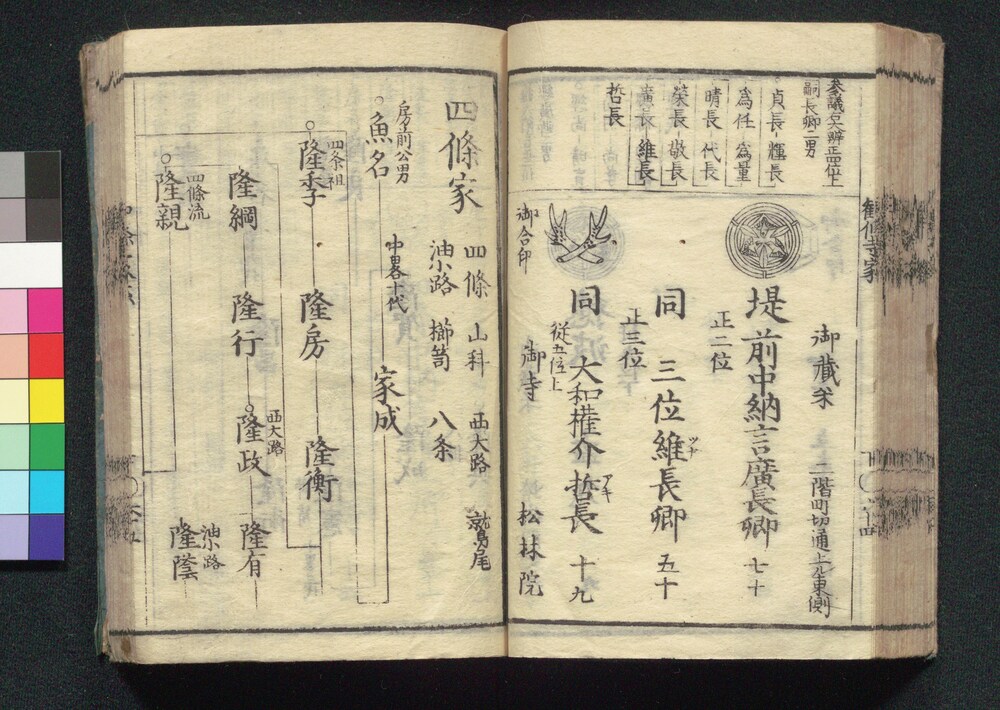 参議左大辨正四位上
嗣長卿二男
貞長 輝長
為任 為量
晴長 代長
栄長 敬長
廣長 維長
哲長
御蔵米
二階町切通上ル東側
堤前中納言廣長卿 七十
正二位
同 三位維長卿 五十
ツナ
正三位
同 大和権介哲長 十九
アキ
従五位上
御合印
御寺 松林院
四條家
四條 山科 西大路 鷲尾
油小路 櫛笥 八条
房前公男
魚名
中畧十代
家成
四条祖
隆季 隆房 隆衡
隆綱 隆行
西大路
隆政 隆有
油小路
隆蔭
四條流
隆親